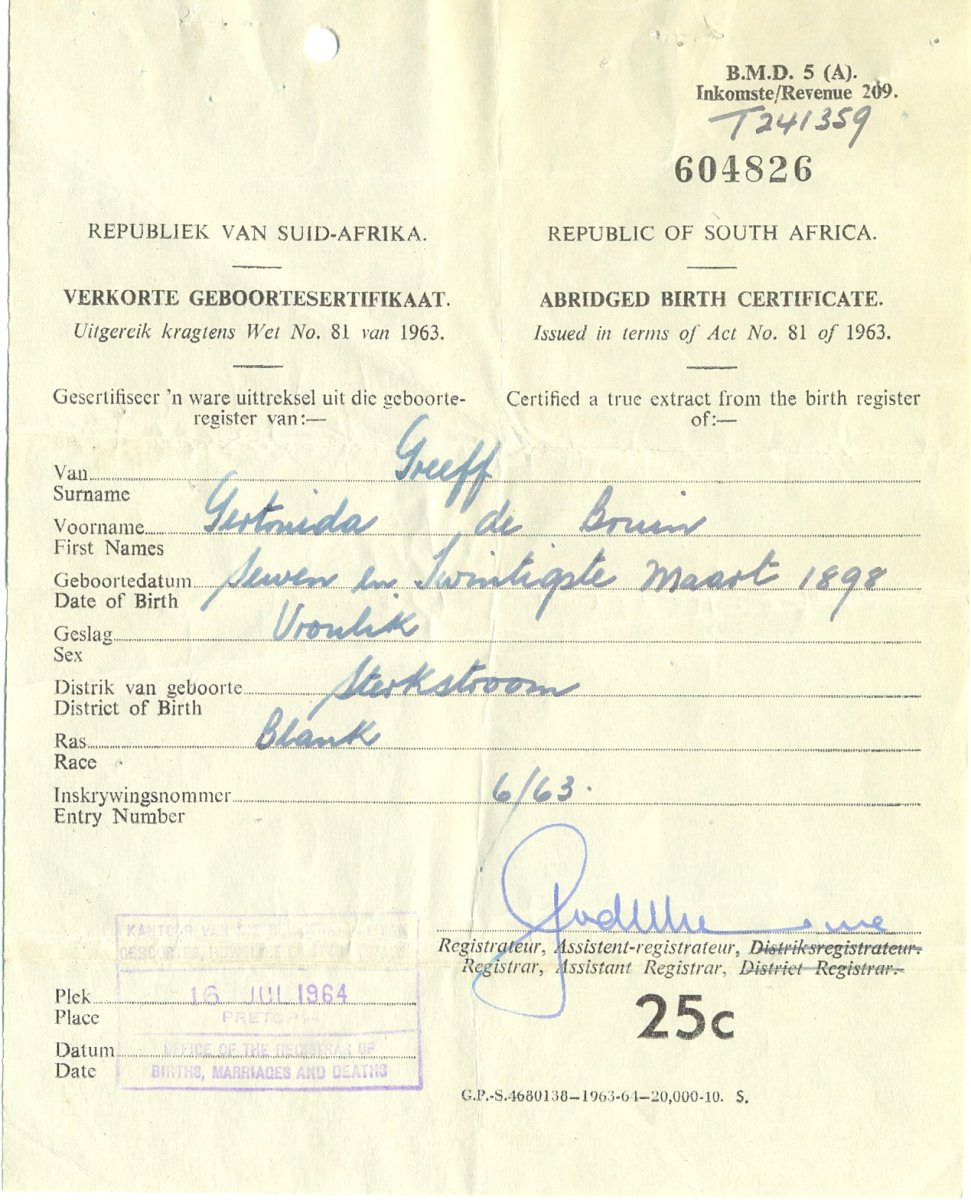 B.M.D. 5 (A).
Inkomste/Revenue 209.
T241359
604826
REPUBLIEK VAN SUID-AFRIKA.
VERKORTE GEBOORTESERTIFIKAAT.
Uitgereik kragtens Wet No. 81 van 1963.
Gesertifiseer 'n ware uittreksel uit die geboorte-
register van:—
REPUBLIC OF SOUTH AFRICA.
ABRIDGED BIRTH CERTIFICATE.
Issued in terms of Act No. 81 of 1963.
Certified a true extract from the birth register
of:—
Van Greeff
Surname
Voorname Gertruida de Bruin
First Names
Geboortedatum Sewen en Twintigste Maart 1898
Date of Birth
Geslag Vroulik
Sex
Distrik van geboorte Sterkstroom
District of Birth
Ras Blank
Race
Inskrywingsnommer 6/63.
Entry Number
Registrateur, Assistent-registrateur, Distriksregistrateur.
Registrar, Assistant Registrar, District Registrar.
25c
KANTOOR VAN DIE
16 JUL 1964
PRETORIA
OFFICE OF THE REGISTRAR OF
BIRTHS, MARRIAGES AND DEATHS
Plek
Place
Datum
Date
G.P.-S.4680138—1963-64—20,000-10. S.